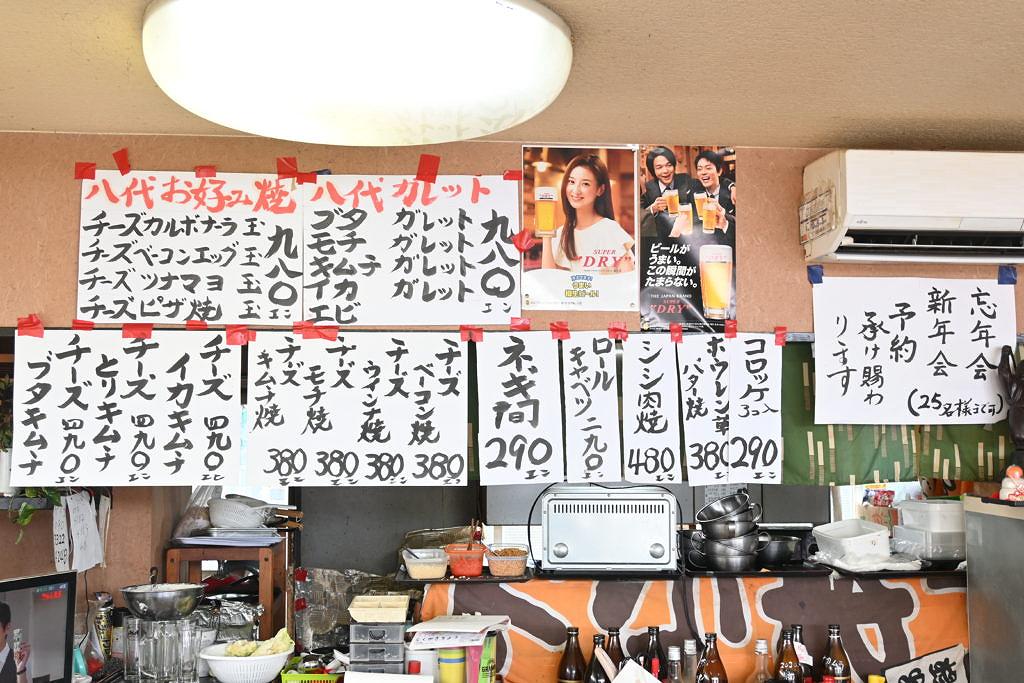 八代お好み焼
チーズカルボナーラ玉
チーズベーコンエッグ玉
チーズツナマヨ玉
チーズピザ焼
九八〇エン
八代ガレット
ブタガレット
モチガレット
キムチガレット
イカガレット
エビ
九八〇エン
SUPER
"DRY"
うまい
樽生ビール!
ビールが
うまい。
この瞬間が
たまらない。
THE JAPAN BRAND
SUPER
"DRY"
忘年会
新年会
予約
承け賜わ
りますす
(25名様まで可)
チーズ四九〇
イカキムチ
チーズ四九〇
とりキムチ
チーズ四九〇
ブタキムチ
チーズ
ベーコン焼
380エン
チーズ
ウインナ焼
380エン
チーズ
モチ焼
380エン
チーズ
キムチ焼
380エン
ネギ間
290エン
ロール
キャベツ二九〇エン
シシ肉焼
480エン
ホウレン草
バター焼
380
コロッケ
3コ入
290エン